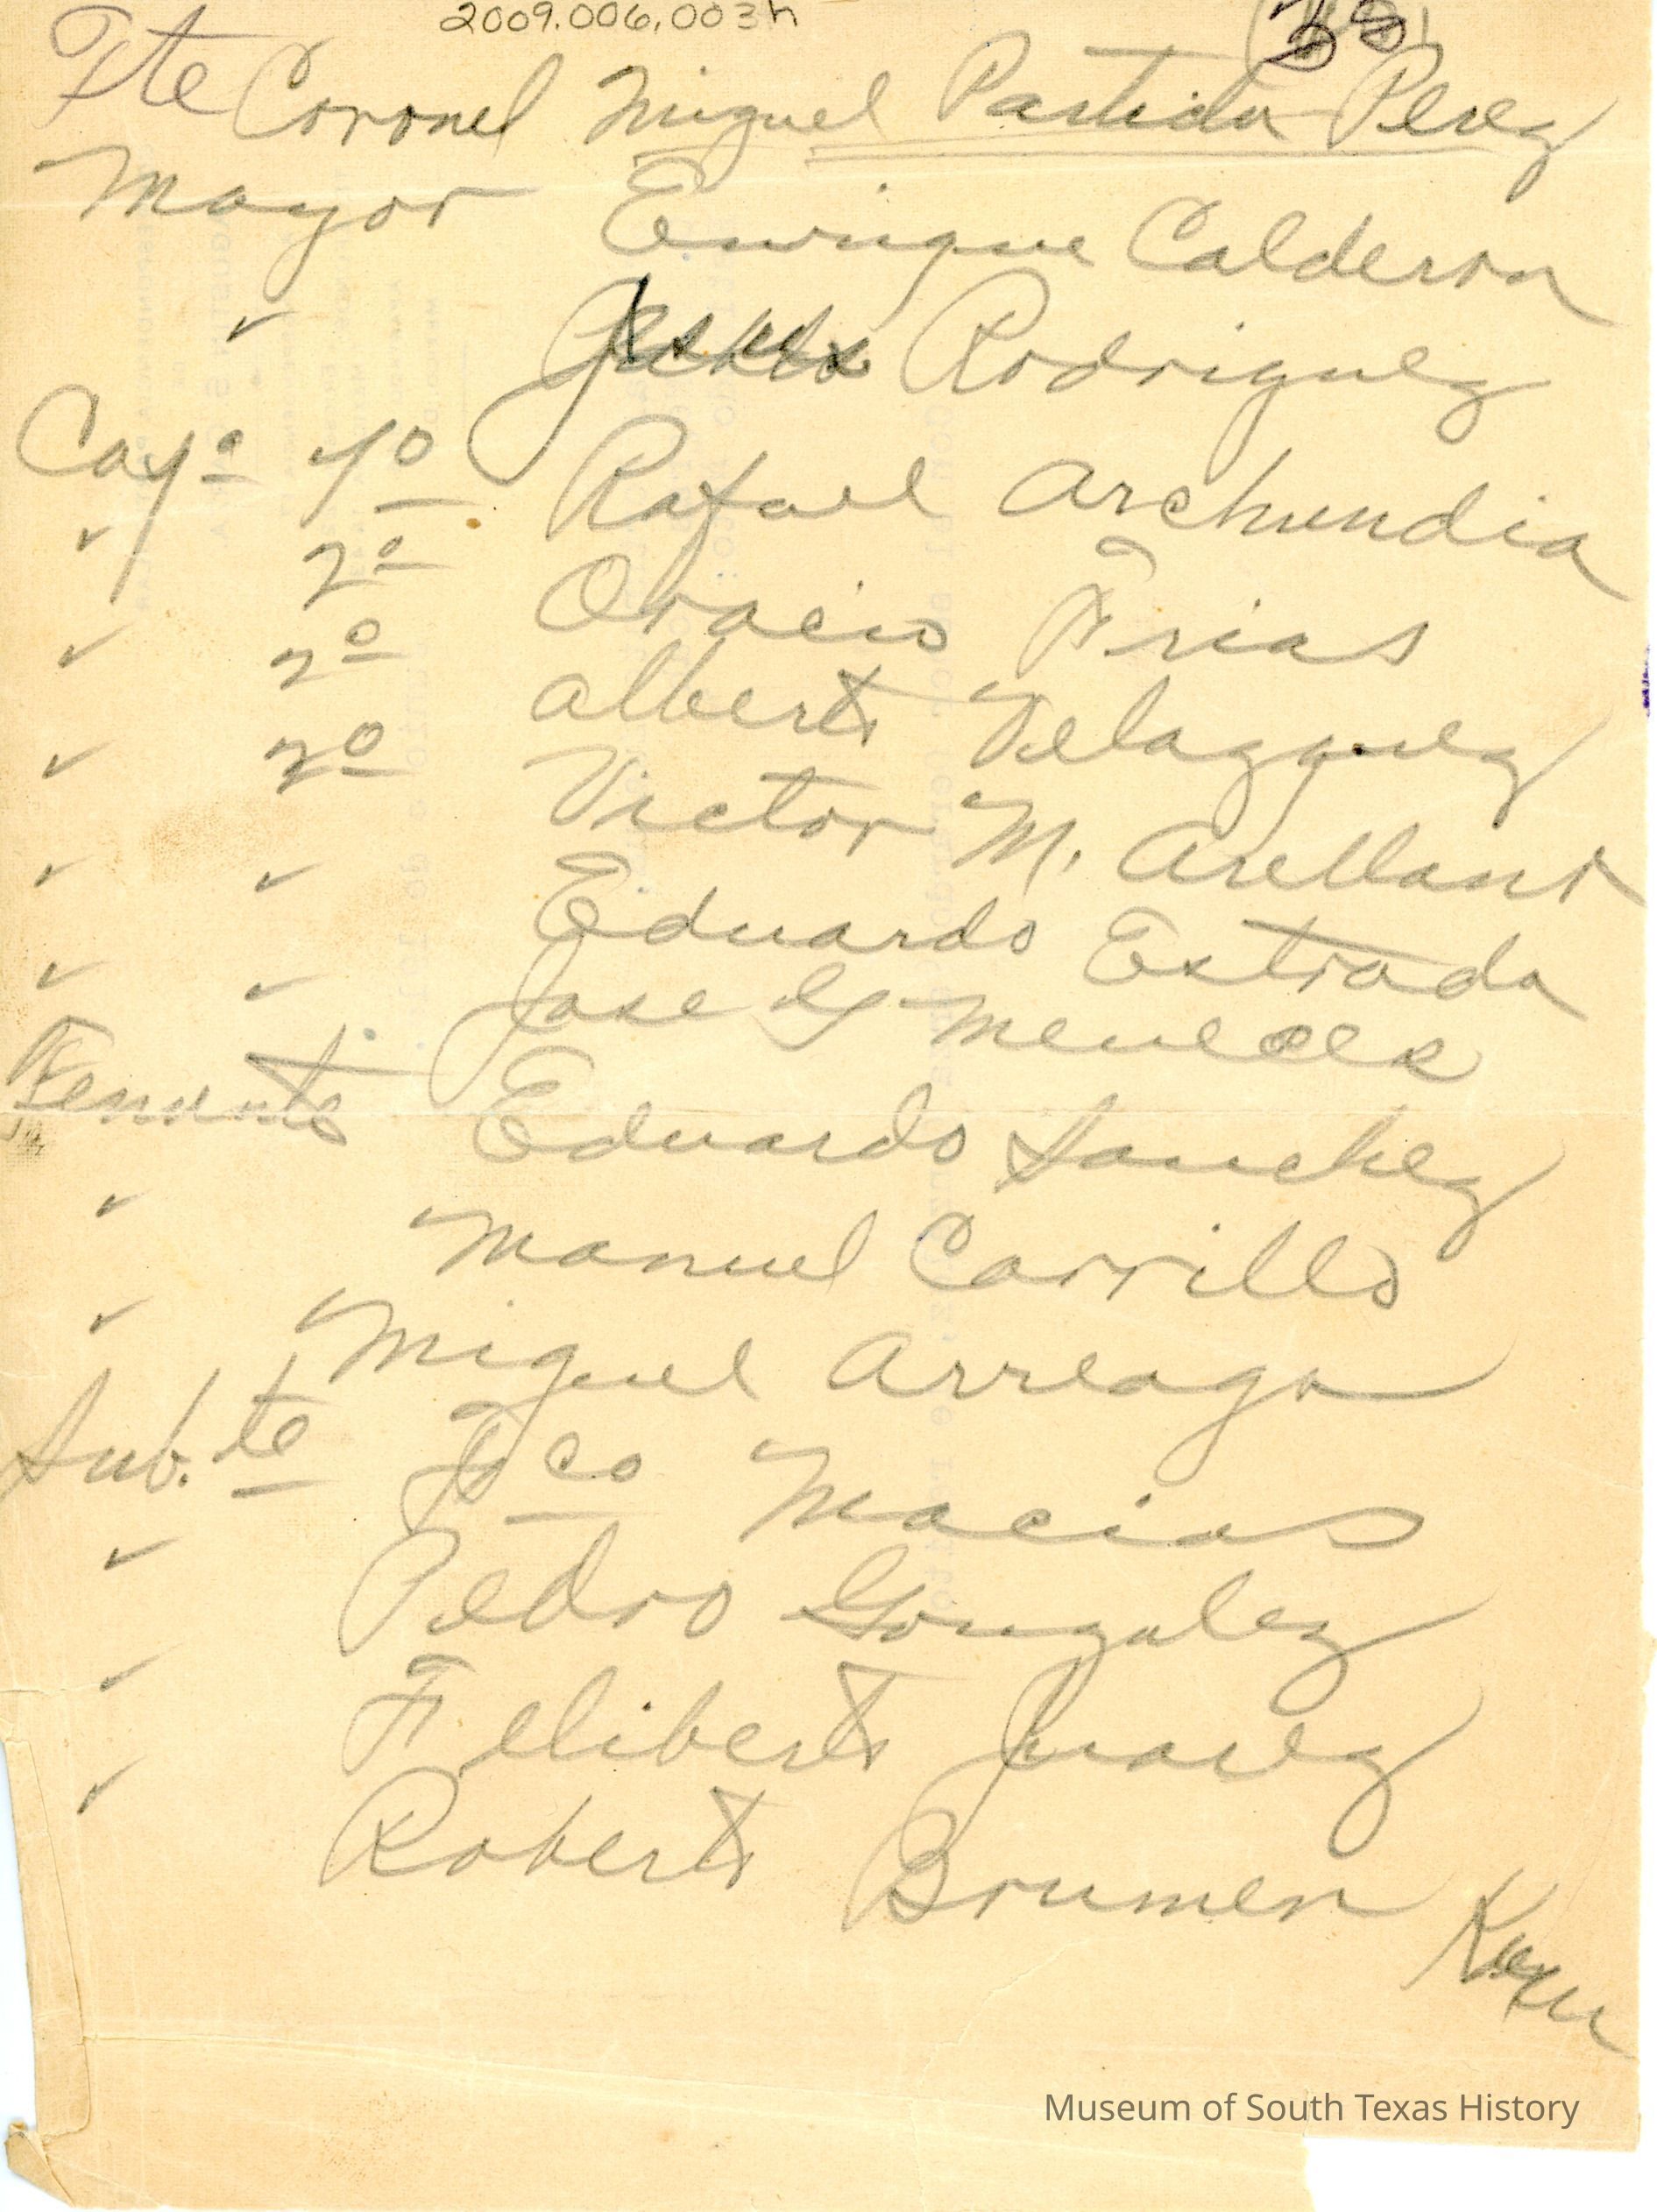 2009.006.003h
38
Tte Coronel Miguel Partida Perez
Mayor Enrique Calderon
✓ Jesus Rodriguez
Capn 1o Rafael Archundia
✓ 2o Oracio Frias
✓ 2o Alberto Velazquez
✓ 2o Victor M. Arellano
✓ ✓ Eduardo Estrada
✓ ✓ Jose G Meneses
Tenente Eduardo Sanchez
✓ Manuel Carrillo
✓ Miguel Arreaga
Sub.te Fco Macias
✓ Pedro Gonzalez
✓ Feliberto Juarez
✓ Roberto Brumen
Museum of South Texas History